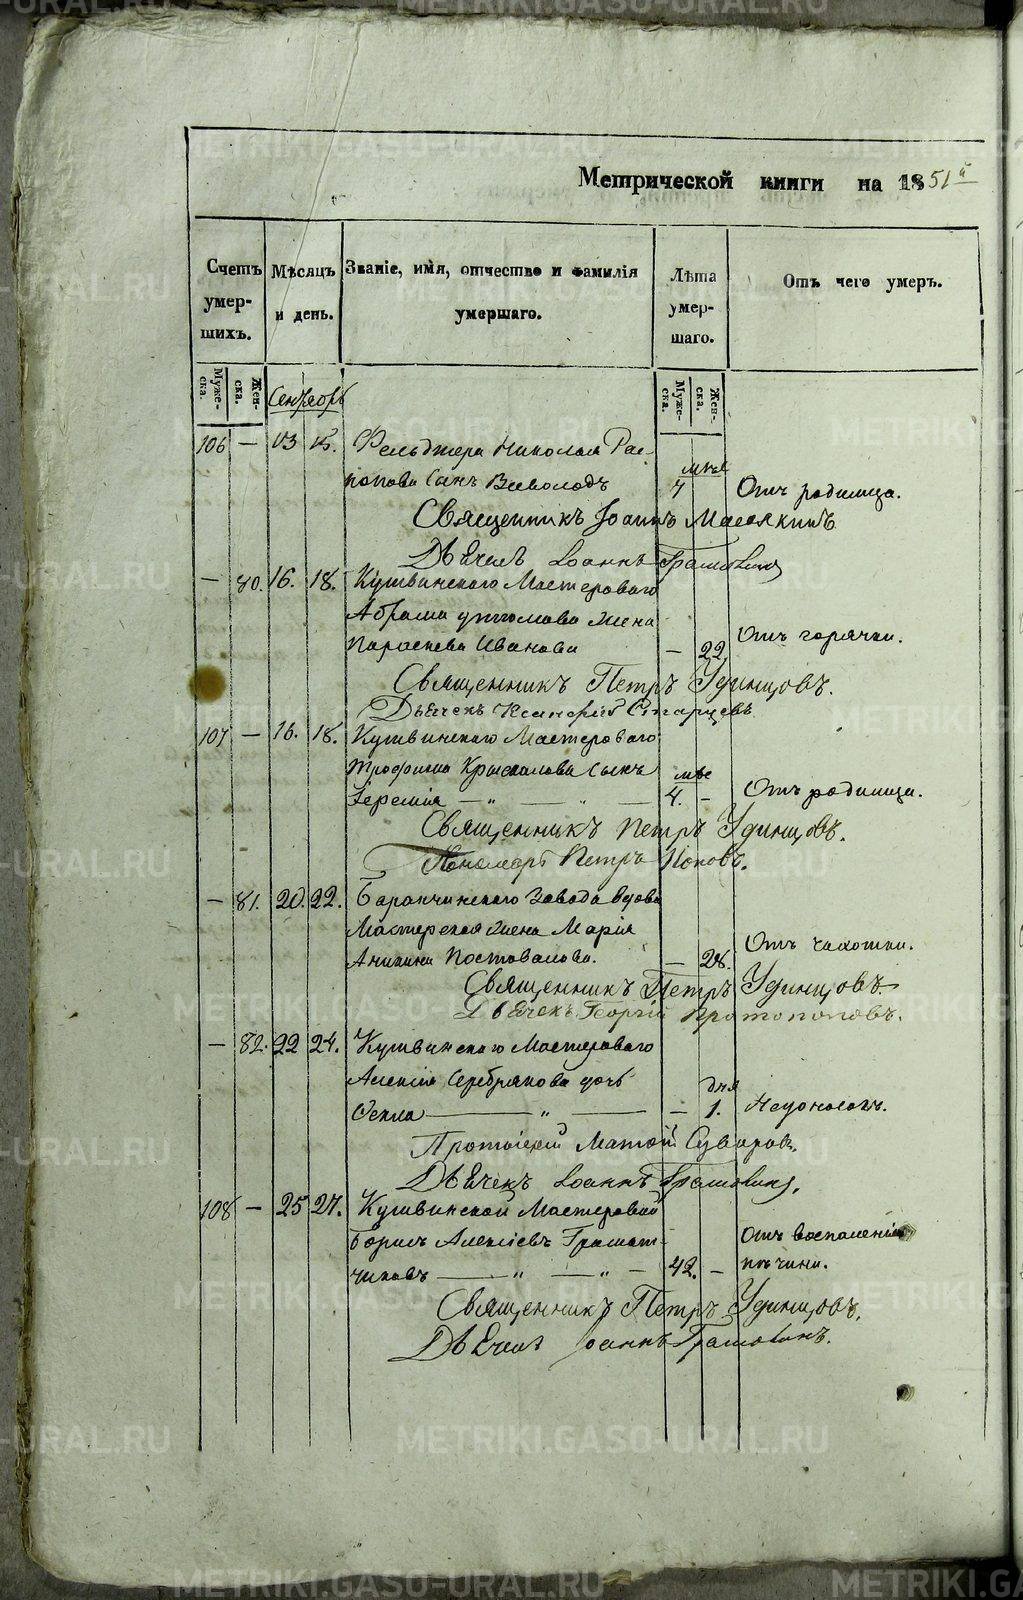 Метрической книги на 1851й
Счетъ умершихъ.
Мѣсяцъ и день.
Званіе, имя, отчество и фамилія умершаго.
Лѣта умершаго.
Отъ чего умеръ.
Мужеска.
Женска.
Сентябрь
Мужеска.
Женска.
106 — 13 15. Фельдшера Николая Рас-
попова сынъ Всеволодъ 4 мѣся Отъ родимца.
Священникъ Іоаннъ
Дьячекъ Іоаннъ
— 80. 16. 18. Кушвинскаго Мастероваго
Абрама жена
Параскева Иванова — 22 Отъ горячки.
Священникъ Петръ Удинцовъ.
Дьячекъ Ксенофонтъ Старцевъ
107 — 16. 18. Кушвинскаго Мастероваго
Трофима сынъ мѣс
Іеремія — " — " — 4. — Отъ родимца.
Священникъ Петръ Удинцовъ.
Пономарь Петръ Поповъ.
— 81. 20. 22. Баранчинскаго Завода вдова
Мастерская жена Марія
Аникина Постовалова. — 28. Отъ чахотки.
Священникъ Петръ Удинцовъ
Дьячекъ Георгій Протопоповъ.
— 82. 22 24. Кушвинскаго Мастероваго
Алексія Серебрякова дочь дня
Фекла — " — — 1. Недоносокъ.
Протоіерей Матѳій Суворовъ.
Дьячекъ Іоаннъ
108 — 25 27. Кушвинской Мастеровой
Борисъ Алексіевъ Грамат- Отъ воспаленія
чиковъ — " — " — 42. — печени.
Священникъ Петръ Удинцовъ.
Дьячекъ Іоаннъ
METRIKI.GASO-URAL.RU